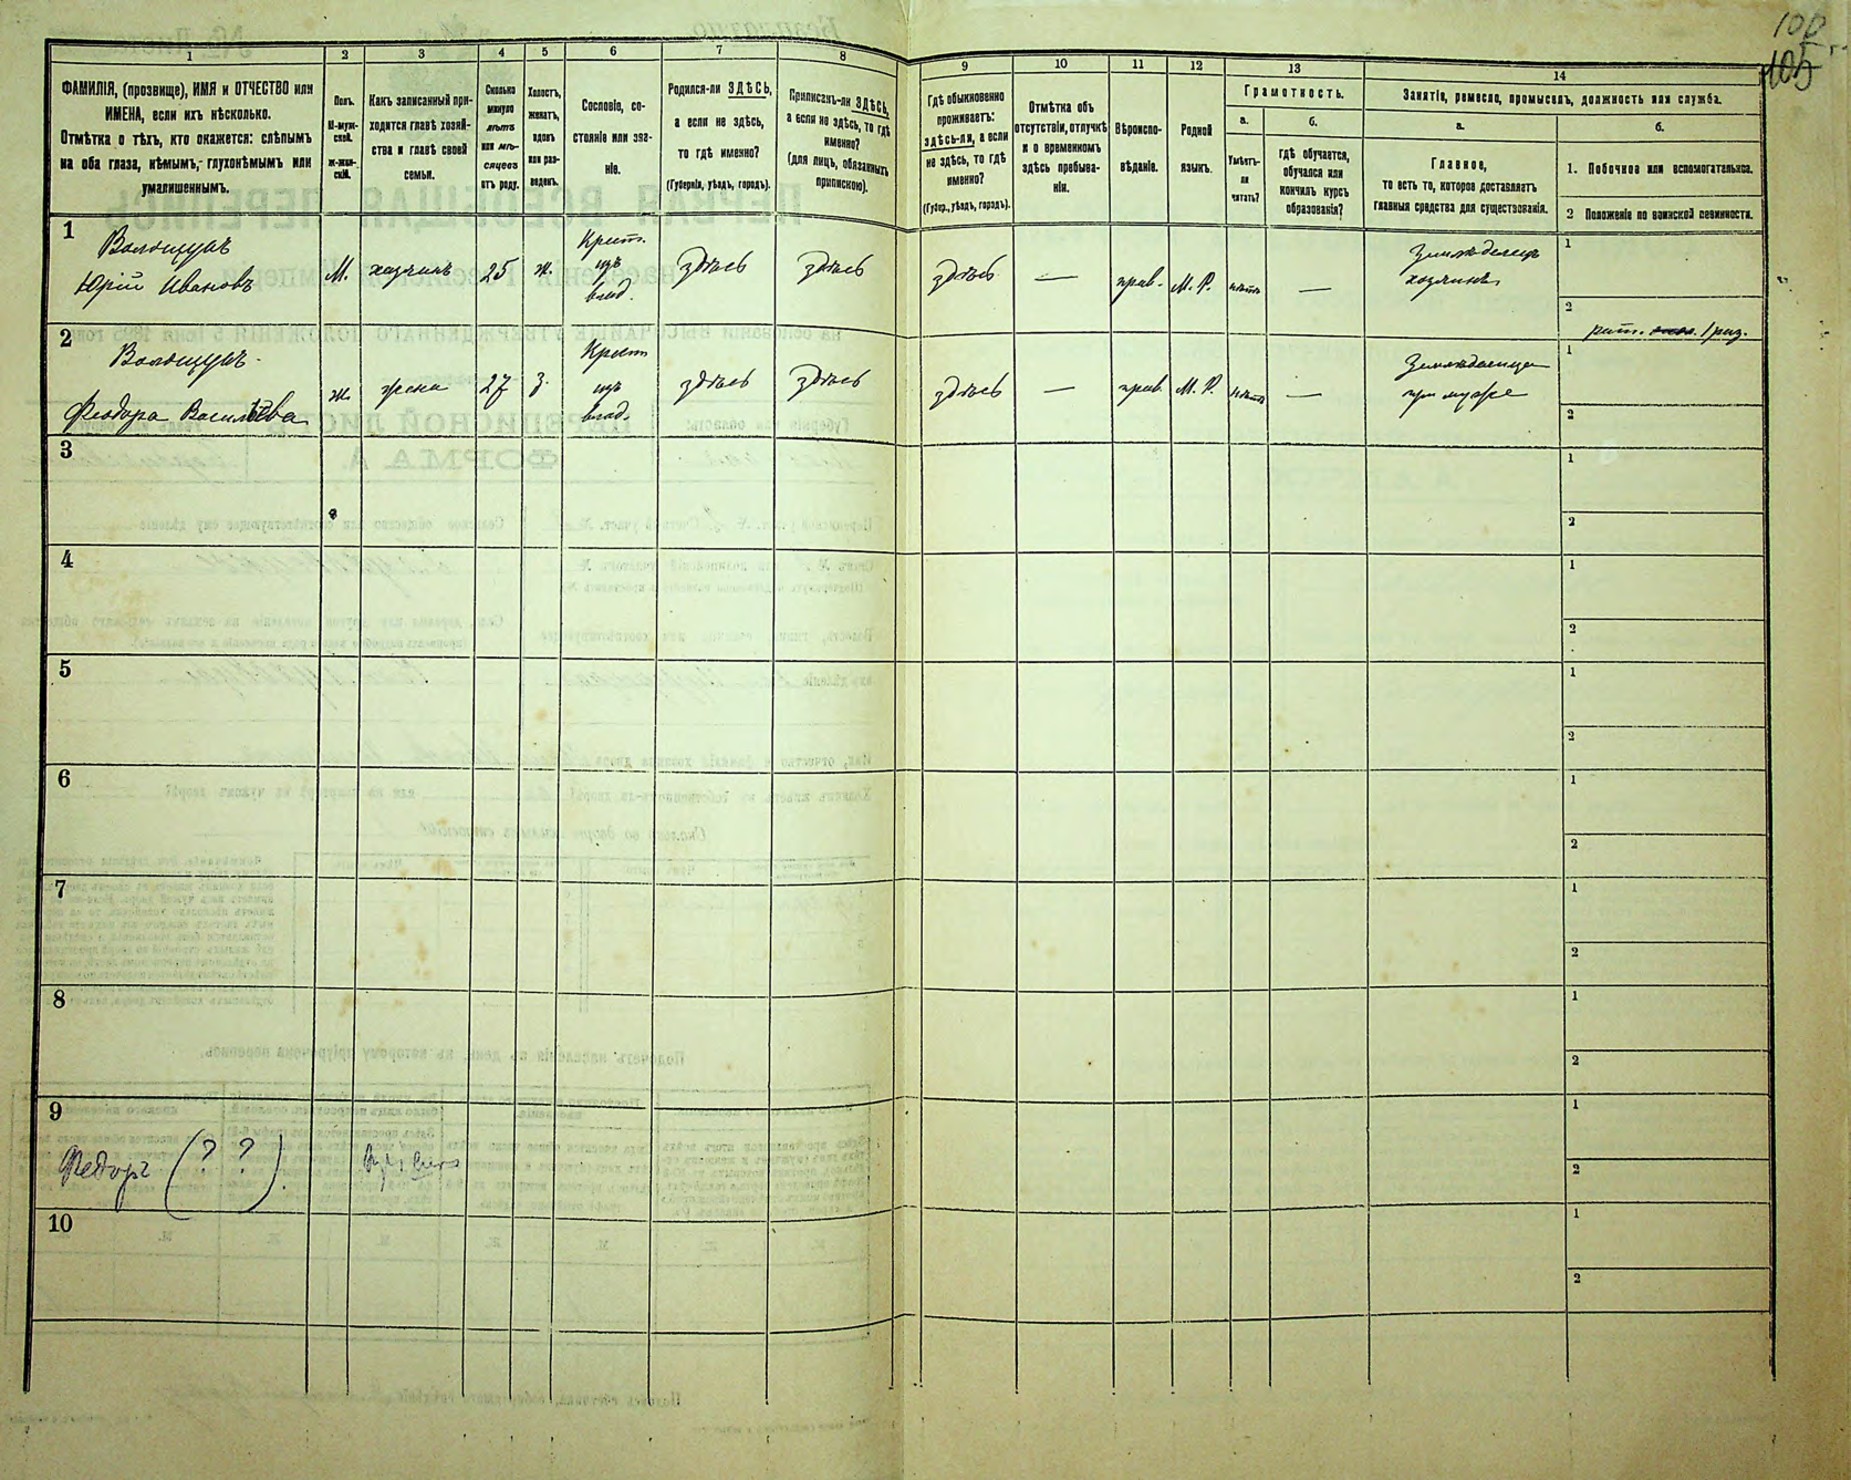 100
105
1
2
3
4
5
6
7
8
9
10
11
12
13
14
ФАМИЛІЯ, (прозвище), ИМЯ и ОТЧЕСТВО или
ИМЕНА, если ихъ нѣсколько.
Отмѣтка о тѣхъ, кто окажется: слѣпымъ
на оба глаза, нѣмымъ, глухонѣмымъ или
умалишеннымъ.
Полъ.
М-муж-
ской.
ж-жен-
скій.
Какъ записанный при-
ходится главѣ хозяй-
ства и главѣ своей
семьи.
Сколько
минуло
лѣтъ
или мѣ-
сяцевъ
отъ роду.
Холостъ,
женатъ,
вдовъ
или раз-
веденъ.
Сословіе, со-
стояніе или зва-
ніе.
Родился-ли ЗДѢСЬ,
а если не здѣсь,
то гдѣ именно?
(Губернія, уѣздъ, городъ).
Приписанъ-ли ЗДѢСЬ,
а если не здѣсь, то гдѣ
именно?
(для лицъ, обязанныхъ
припискою).
Гдѣ обыкновенно
проживаетъ:
здѣсь-ли, а если
не здѣсь, то гдѣ
именно?
(Губер., уѣздъ, городъ).
Отмѣтка объ
отсутствіи, отлучкѣ
и о временномъ
здѣсь пребыва-
ніи.
Вѣроиспо-
вѣданіе.
Родной
языкъ.
Грамотность.
а.
б.
Умѣетъ-
ли
читать?
гдѣ обучается,
обучался или
кончилъ курсъ
образованія?
Занятіе, ремесло, промыселъ, должность или служба.
а.
б.
Главное,
то есть то, которое доставляетъ
главныя средства для существованія.
1. Побочное или вспомогательное.
2 Положеніе по воинской повинности.
1
Юрій Ивановъ
М.
хозяинъ
25
ж.
Крест.
изъ
влад.
здѣсь
здѣсь
здѣсь
—
прав.
М. Р.
нѣтъ
—
Земледѣлецъ
хозяинъ
1
2
рат. 1 раз.
2
Феодора Васильева
ж.
жена
27
з.
Крест
изъ
влад.
здѣсь
здѣсь
здѣсь
—
прав.
М. Р.
нѣтъ
—
при мужѣ
1
2
3
1
2
4
1
2
5
1
2
6
1
2
7
1
2
8
1
2
9
Федоръ (? ?).
1
2
10
1
2